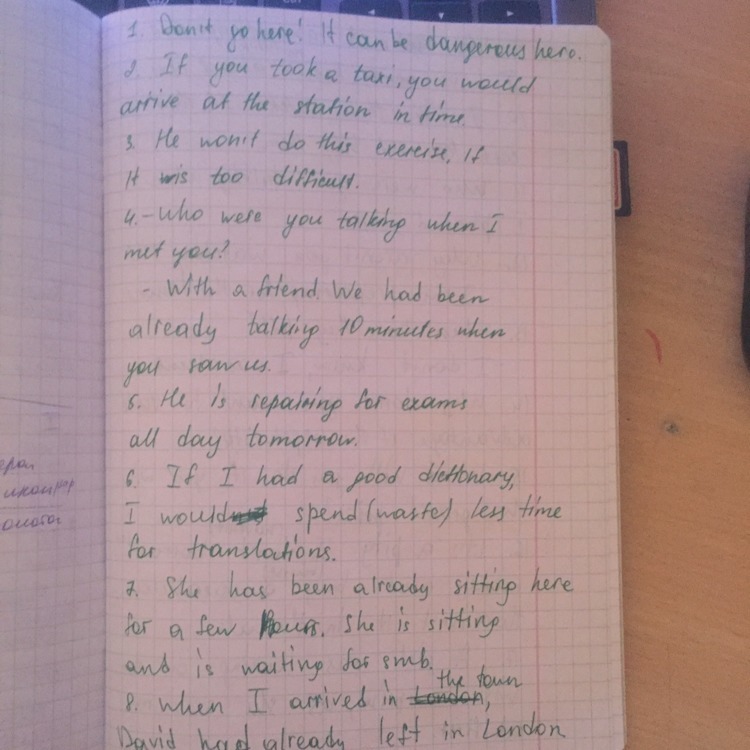 1. Don't go here! It can be dangerous here.
2. If you took a taxi, you would
arrive at the station in time.
3. He won't do this exercise, if
It is too difficult.
4. - Who were you talking when I
met you?
- With a friend. We had been
already talking 10 minutes when
you saw us.
5. He is repairing for exams
all day tomorrow.
6. If I had a good dictionary,
I would spend (waste) less time
for translations.
7. She has been already sitting here
for a few hours. She is sitting
and is waiting for smb.
the town
8. When I arrived in London,
David had already left in London